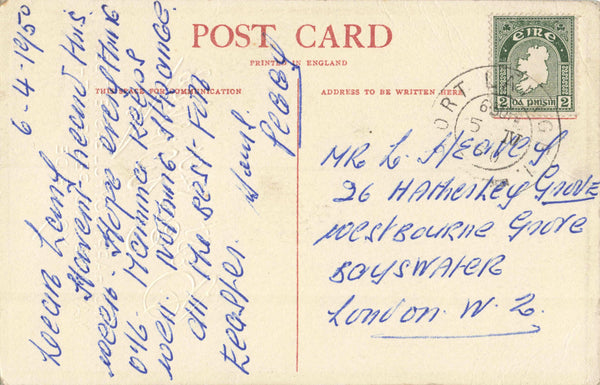 POST CARD
PRINTED IN ENGLAND
THIS SPACE FOR COMMUNICATION
ADDRESS TO BE WRITTEN HERE
6-4-1950
Dear
Haven't heard this
week. Hope everything
O/k. keeps
well. Nothing strange.
All the best for
Easter.
Peggy
éIRe
2 Dá pinsin 2
MR L. HEAVEY
26 HATHERLEY GROVE
WESTBOURNE GROVE
BAYSWATER
LONDON W. 2.